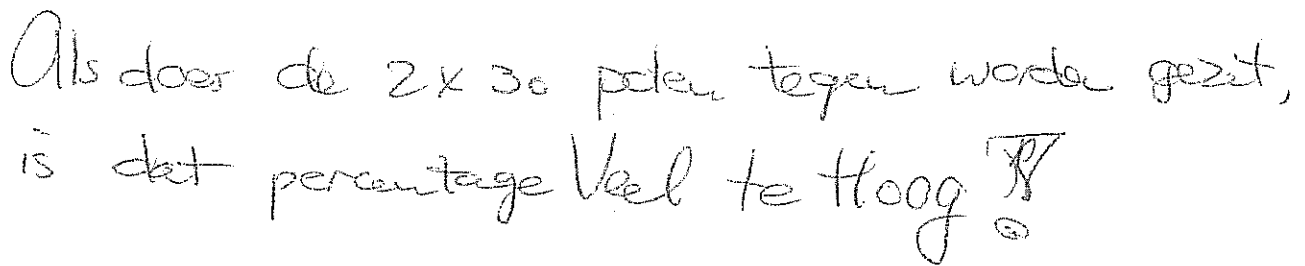 Als daar de 2 x 30 palen tegen worden gezet,
is dat percentage Veel te Hoog !